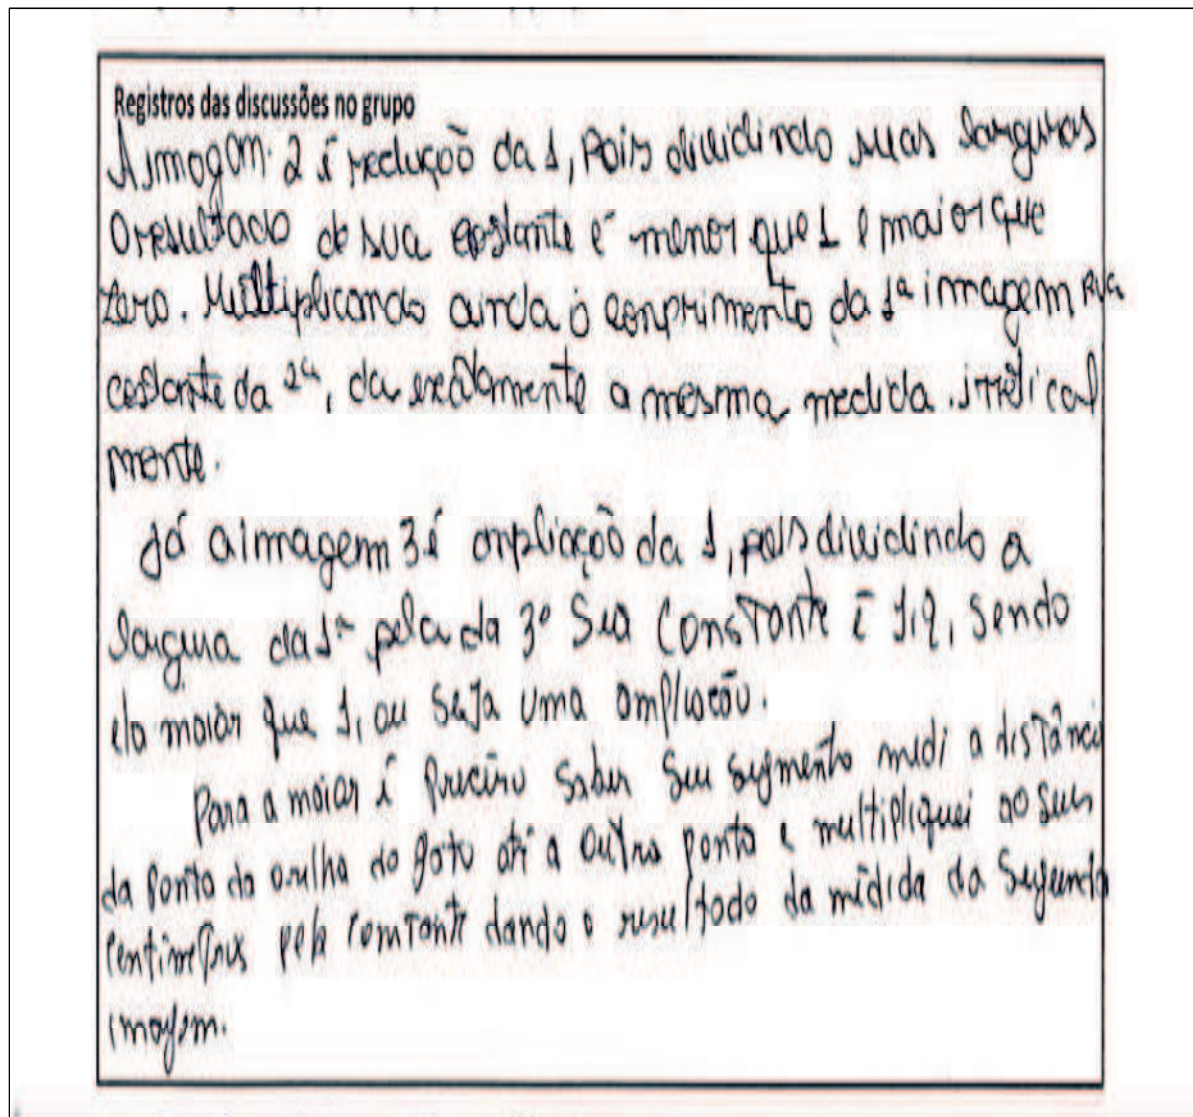 Registros das discussões no grupo
A imagem 2 é redução da 1, pois dividindo suas larguras
O resultado de sua costante é menor que 1 e maior que
zero. Multiplicando ainda o conprimento da 1ª imagem
costante da 2ª, da exatamente a mesma medida.
mente.
Já a imagem 3 é ampliação da 1, pois dividindo a
largura da 1ª pela da 3ª Sua Constante é 1,2, Sendo
ela maior que 1, ou Seja uma ampliação.
Para a maior é preciso Saber Seu segmento medi a distânci
da ponta da orelha do gato até a outra ponta e multipliquei ao seus
centimetros pela constante dando o resultado da medida da Segunda
imagem.